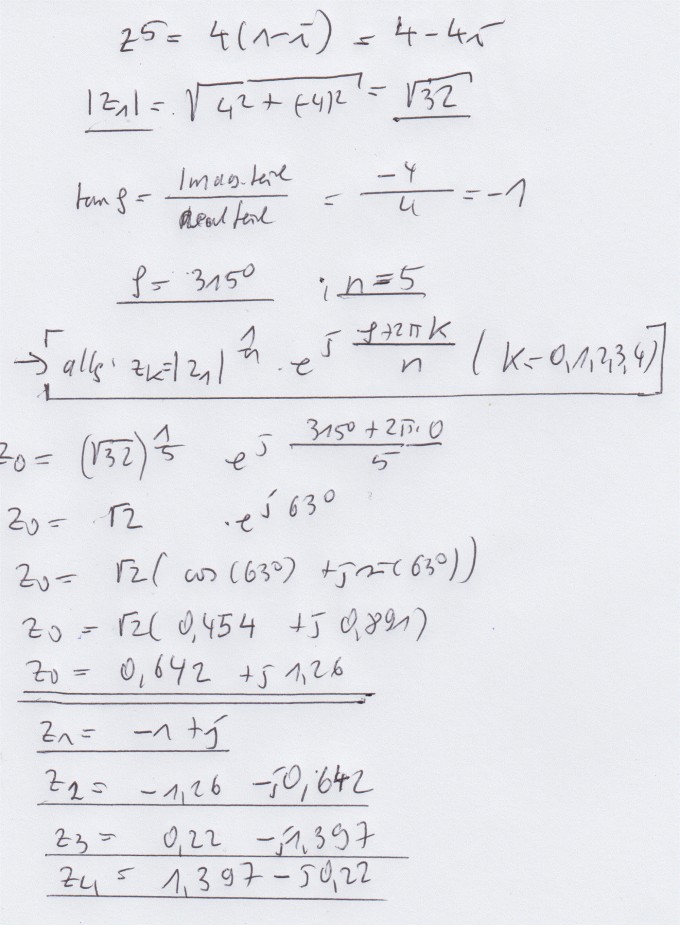 z^5 = 4(1-i) = 4-4i
|z_1| = √(4^2+(-4)^2) = √32
tan φ = Imag.teil / Realteil = -4/4 = -1
φ = 315° ; n=5
→ allg: z_k = |z_1|^(1/n) · e^(j (φ+2πk)/n) (k=0,1,2,3,4)
z_0 = (√32)^(1/5) e^(j (315°+2π·0)/5)
z_0 = √2 · e^(j 63°)
z_0 = √2 ( cos (63°) + j sin (63°))
z_0 = √2 ( 0,454 + j 0,891)
z_0 = 0,642 + j 1,26
z_1 = -1 + j
z_2 = -1,26 - j0,642
z_3 = 0,22 - j1,397
z_4 = 1,397 - j0,22